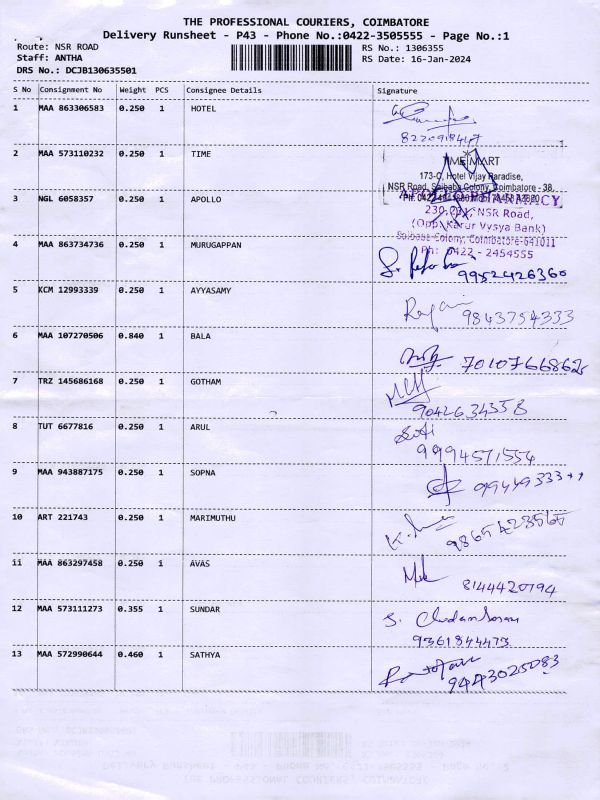 THE PROFESSIONAL COURIERS, COIMBATORE
Delivery Runsheet - P43 - Phone No.:0422-3505555 - Page No.:1
Route: NSR ROAD RS No.: 1306355
Staff: ANTHA RS Date: 16-Jan-2024
DRS No.: DCJB130635501
S No Consignment No Weight PCS Consignee Details Signature
1 MAA 863306583 0.250 1 HOTEL
8220918447
2 MAA 573110232 0.250 1 TIME
TIME MART
173-C, Hotel Vijay Paradise,
NSR Road, Saibaba Colony, Coimbatore - 38.
3 NGL 6058357 0.250 1 APOLLO
APOLLO PHARMACY
NSR Road,
(Opp. Karur Vysya Bank)
Saibaba Colony, Coimbatore-641011
Ph: 0422 - 2454555
4 MAA 863734736 0.250 1 MURUGAPPAN
9952426360
5 KCM 12993339 0.250 1 AYYASAMY
9843754333
6 MAA 107270506 0.840 1 BALA
7010766862
7 TRZ 145686168 0.250 1 GOTHAM
9042634558
8 TUT 6677816 0.250 1 ARUL
9994571554
9 MAA 943887175 0.250 1 SOPNA
10 ART 221743 0.250 1 MARIMUTHU
9865423565
11 MAA 863297458 0.250 1 AVAS
8144420794
12 MAA 573111273 0.355 1 SUNDAR
9361844473
13 MAA 572990644 0.460 1 SATHYA
9443025083